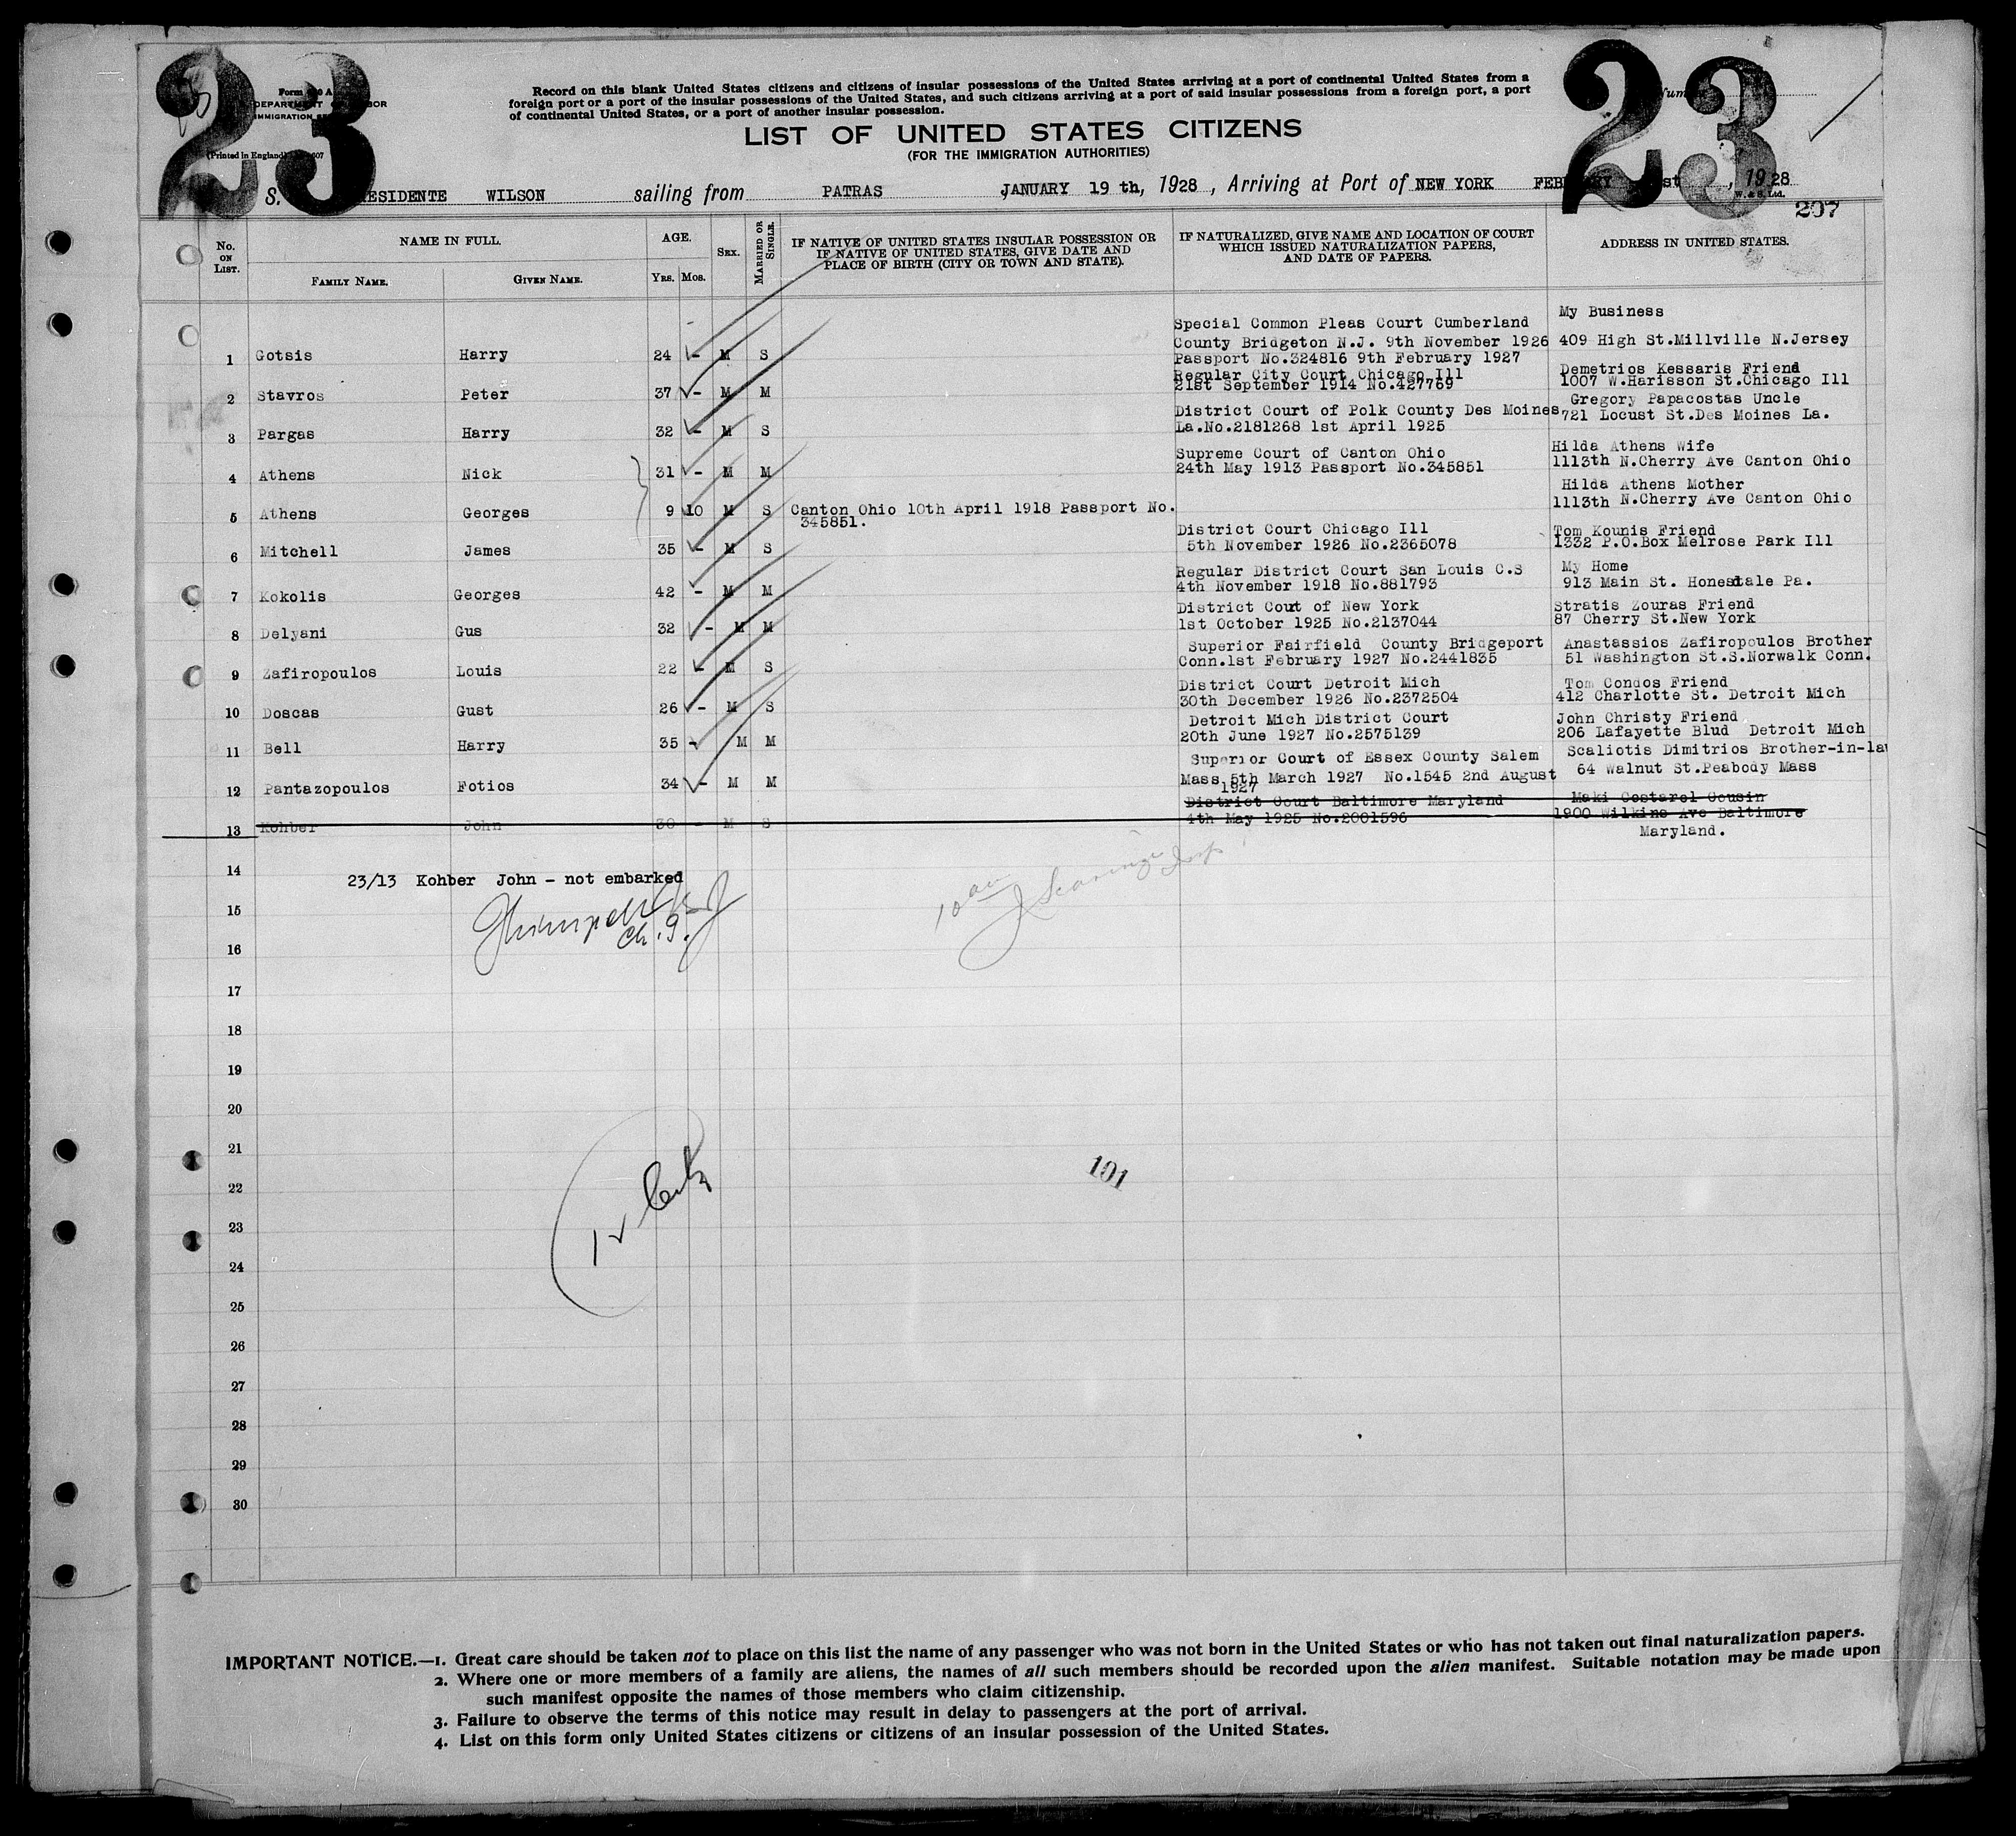 23
23
Form
DEPARTMENT OF LABOR
IMMIGRATION
(Printed in England)
Record on this blank United States citizens and citizens of insular possessions of the United States arriving at a port of continental United States from a
foreign port or a port of the insular possessions of the United States, and such citizens arriving at a port of said insular possessions from a foreign port, a port
of continental United States, or a port of another insular possession.
LIST OF UNITED STATES CITIZENS
(FOR THE IMMIGRATION AUTHORITIES)
S. RESIDENTE WILSON sailing from PATRAS JANUARY 19 th, 1928, Arriving at Port of NEW YORK FEBRUARY st, 1928
W. & S. Ltd.
207
No. ON LIST. NAME IN FULL. AGE. SEX. MARRIED OR SINGLE. IF NATIVE OF UNITED STATES INSULAR POSSESSION OR IF NATIVE OF UNITED STATES, GIVE DATE AND PLACE OF BIRTH (CITY OR TOWN AND STATE). IF NATURALIZED, GIVE NAME AND LOCATION OF COURT WHICH ISSUED NATURALIZATION PAPERS, AND DATE OF PAPERS. ADDRESS IN UNITED STATES.
FAMILY NAME. GIVEN NAME. YRS. MOS.
1 Gotsis Harry 24 - M S Special Common Pleas Court Cumberland My Business
County Bridgeton N.J. 9th November 1926 409 High St.Millville N.Jersey
Passport No.324816 9th February 1927
2 Stavros Peter 37 - M M Regular City Court Chicago Ill Demetrios Kessaris Friend
21st September 1914 No.427769 1007 W.Harisson St.Chicago Ill
3 Pargas Harry 32 - M S District Court of Polk County Des Moines Gregory Papacostas Uncle
La.No.2181268 1st April 1925 721 Locust St.Des Moines La.
4 Athens Nick 31 - M M Supreme Court of Canton Ohio Hilda Athens Wife
24th May 1913 Passport No.345851 1113th N.Cherry Ave Canton Ohio
5 Athens Georges 9 10 M S Canton Ohio 10th April 1918 Passport No. Hilda Athens Mother
345851. 1113th N.Cherry Ave Canton Ohio
6 Mitchell James 35 - M S District Court Chicago Ill Tom Kounis Friend
5th November 1926 No.2365078 1332 P.O.Box Melrose Park Ill
7 Kokolis Georges 42 - M M Regular District Court San Louis C.S My Home
4th November 1918 No.881793 913 Main St. Honesdale Pa.
8 Delyani Gus 32 - M M District Cout of New York Stratis Zouras Friend
1st October 1925 No.2137044 87 Cherry St.New York
9 Zafiropoulos Louis 22 - M S Superior Fairfield County Bridgeport Anastassios Zafiropoulos Brother
Conn.1st February 1927 No.2441835 51 Washington St.S.Norwalk Conn.
10 Doscas Gust 26 - M S District Court Detroit Mich Tom Condos Friend
30th December 1926 No.2372504 412 Charlotte St. Detroit Mich
11 Bell Harry 35 - M M Detroit Mich District Court John Christy Friend
20th June 1927 No.2575139 206 Lafayette Blud Detroit Mich
12 Pantazopoulos Fotios 34 - M M Superior Court of Essex County Salem Scaliotis Dimitrios Brother-in-law
Mass 5th March 1927 No.1545 2nd August 64 Walnut St.Peabody Mass
1927
13 Kohber John 30 - M S District Court Baltimore Maryland Maki Costarel Cousin
4th May 1925 No.2001596 1900 Wilkins Ave Baltimore
Maryland.
14
23/13 Kohber John - not embarked
15
16
17
18
19
20
21
22
101
23
24
25
26
27
28
29
30
IMPORTANT NOTICE.—1. Great care should be taken not to place on this list the name of any passenger who was not born in the United States or who has not taken out final naturalization papers.
2. Where one or more members of a family are aliens, the names of all such members should be recorded upon the alien manifest. Suitable notation may be made upon
such manifest opposite the names of those members who claim citizenship.
3. Failure to observe the terms of this notice may result in delay to passengers at the port of arrival.
4. List on this form only United States citizens or citizens of an insular possession of the United States.